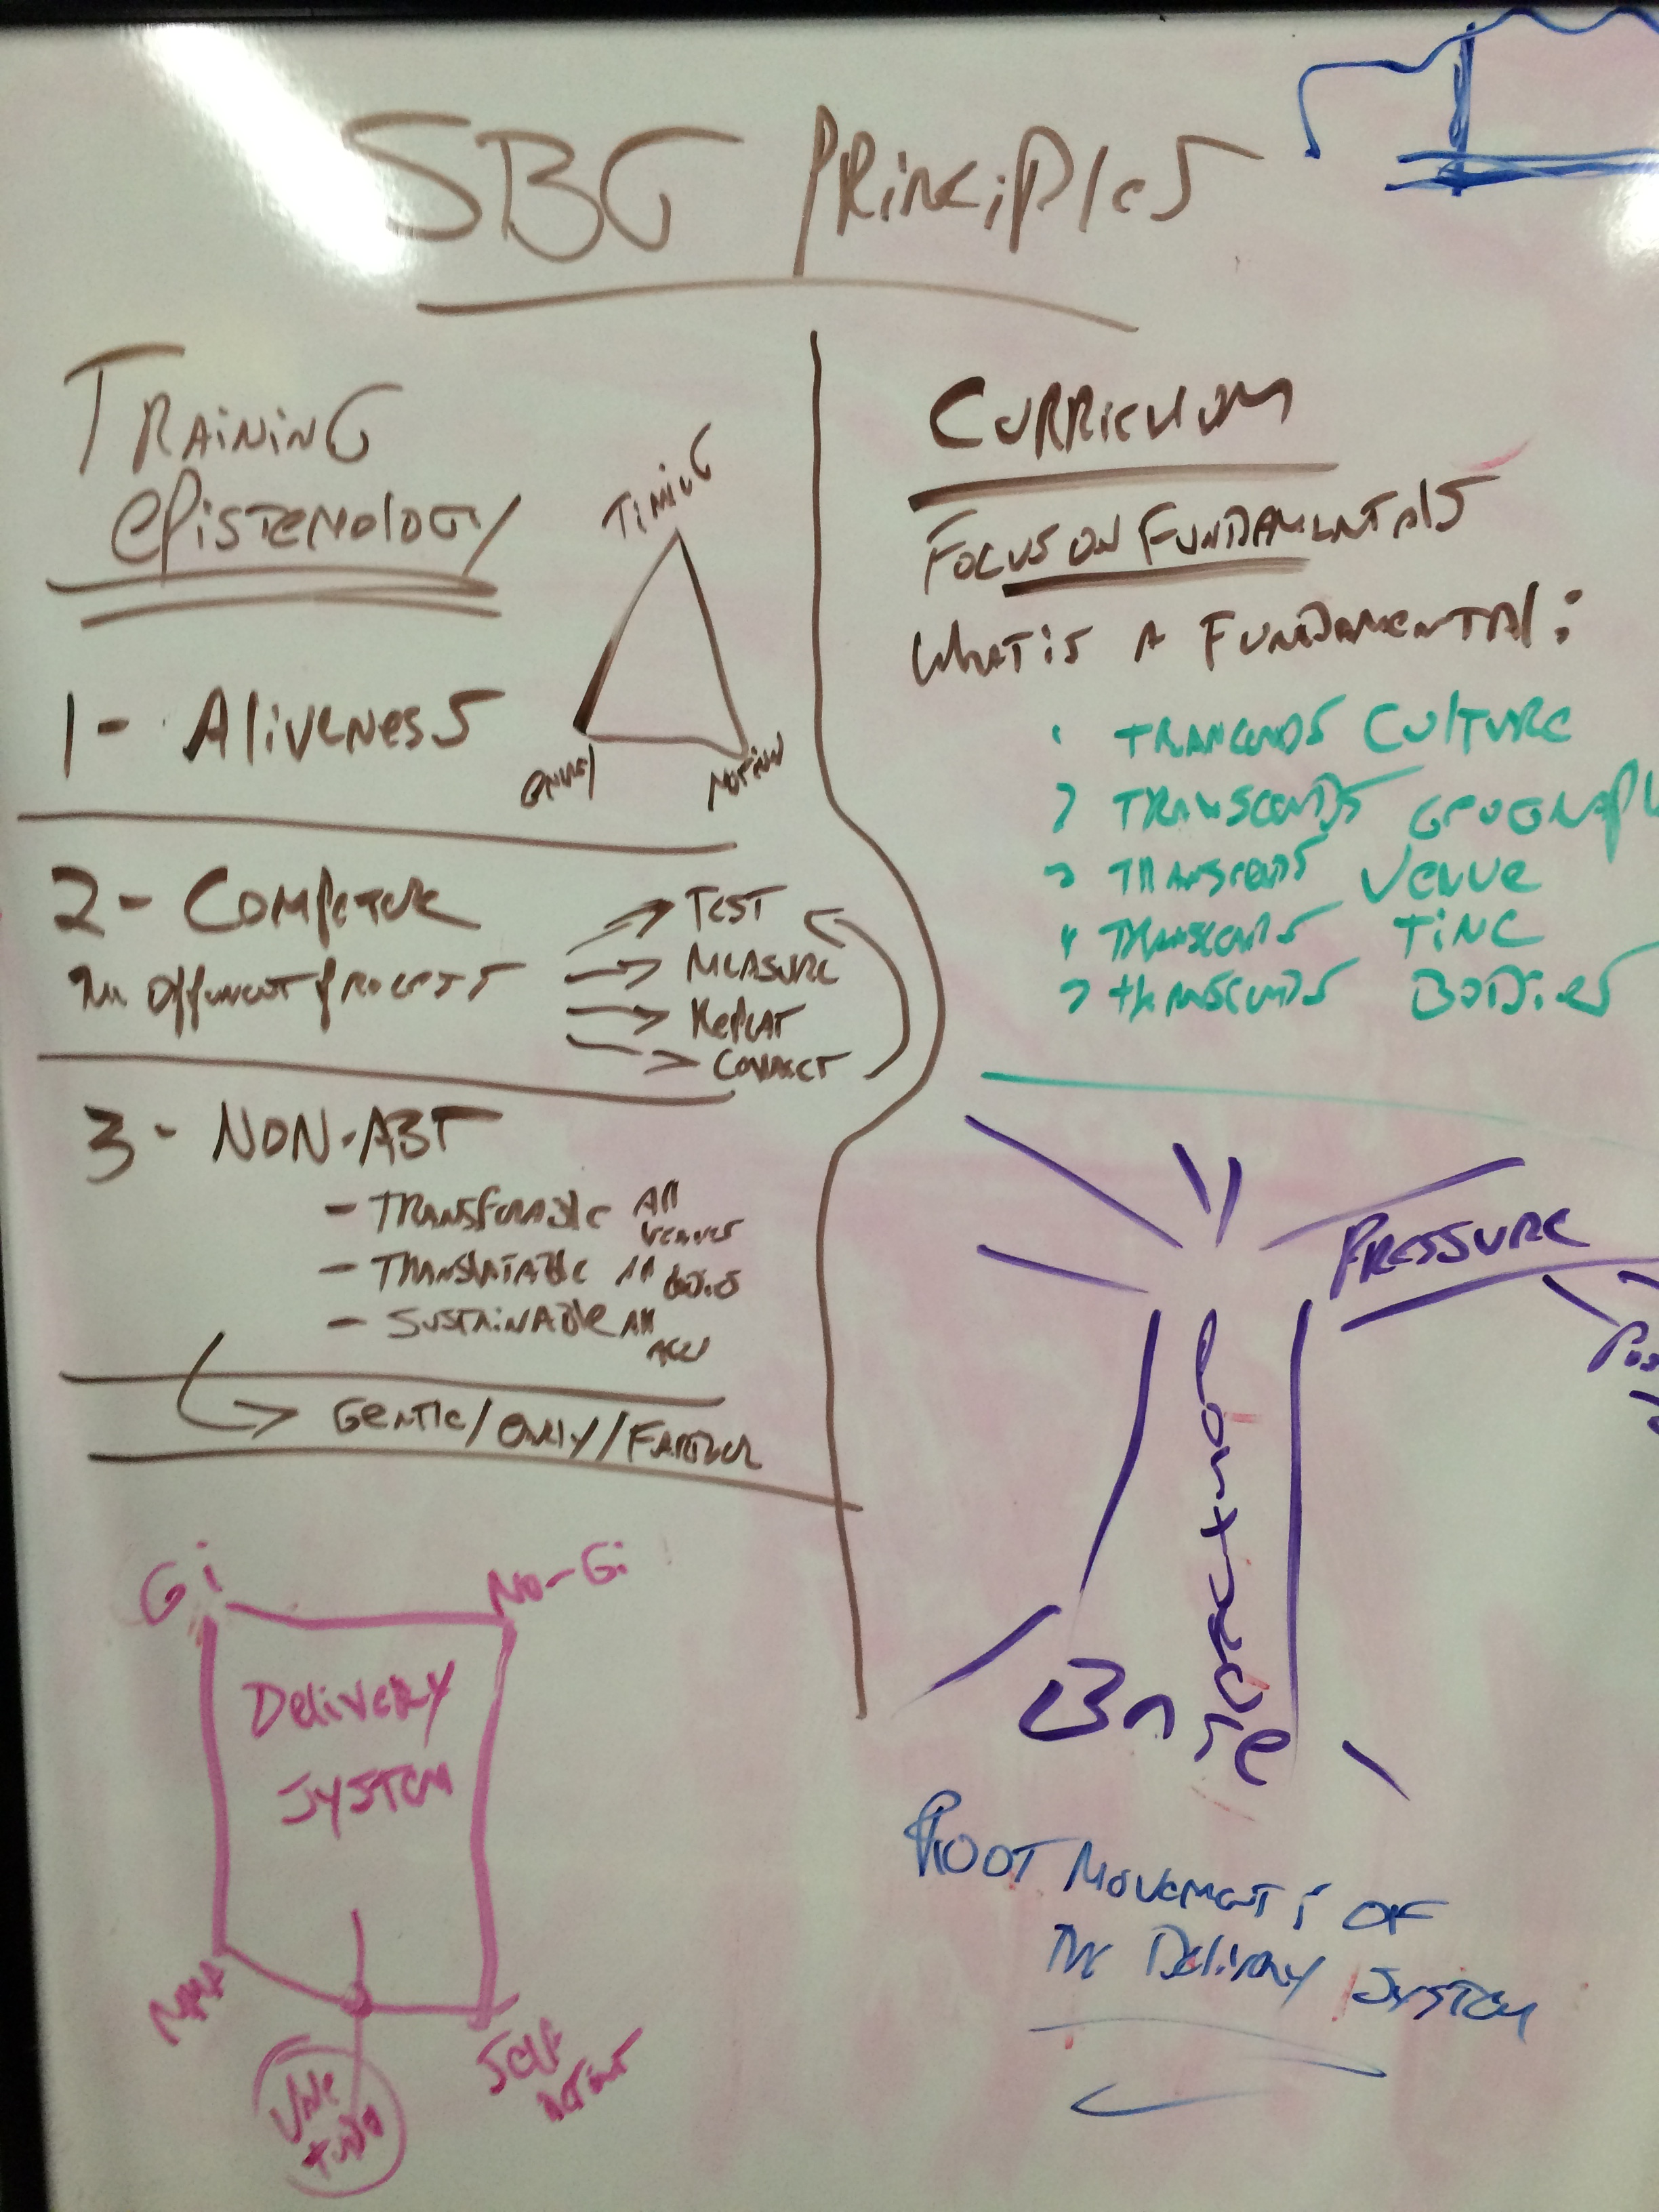 SBG Principles
Training
epistemology
Timing
1 - Aliveness
Energy
Motion
2 - Compete
Test
Measure
Repeat
Connect
3 - Non-ABT
- Transferable All
venues
- Translatable All
bodies
- Sustainable All
ages
Gentle/Early/Farther
Gi
No-Gi
Delivery
System
MMA
Self
Defense
Vale
tudo
Curriculum
Focus on Fundamentals
What is a Fundamental:
1 Trancends Culture
2 Transcends Geograph
3 Transcends Venue
4 Transcends Time
5 transcends Bodies
Pressure
Posture
Base
Root Movements of
the Delivery System